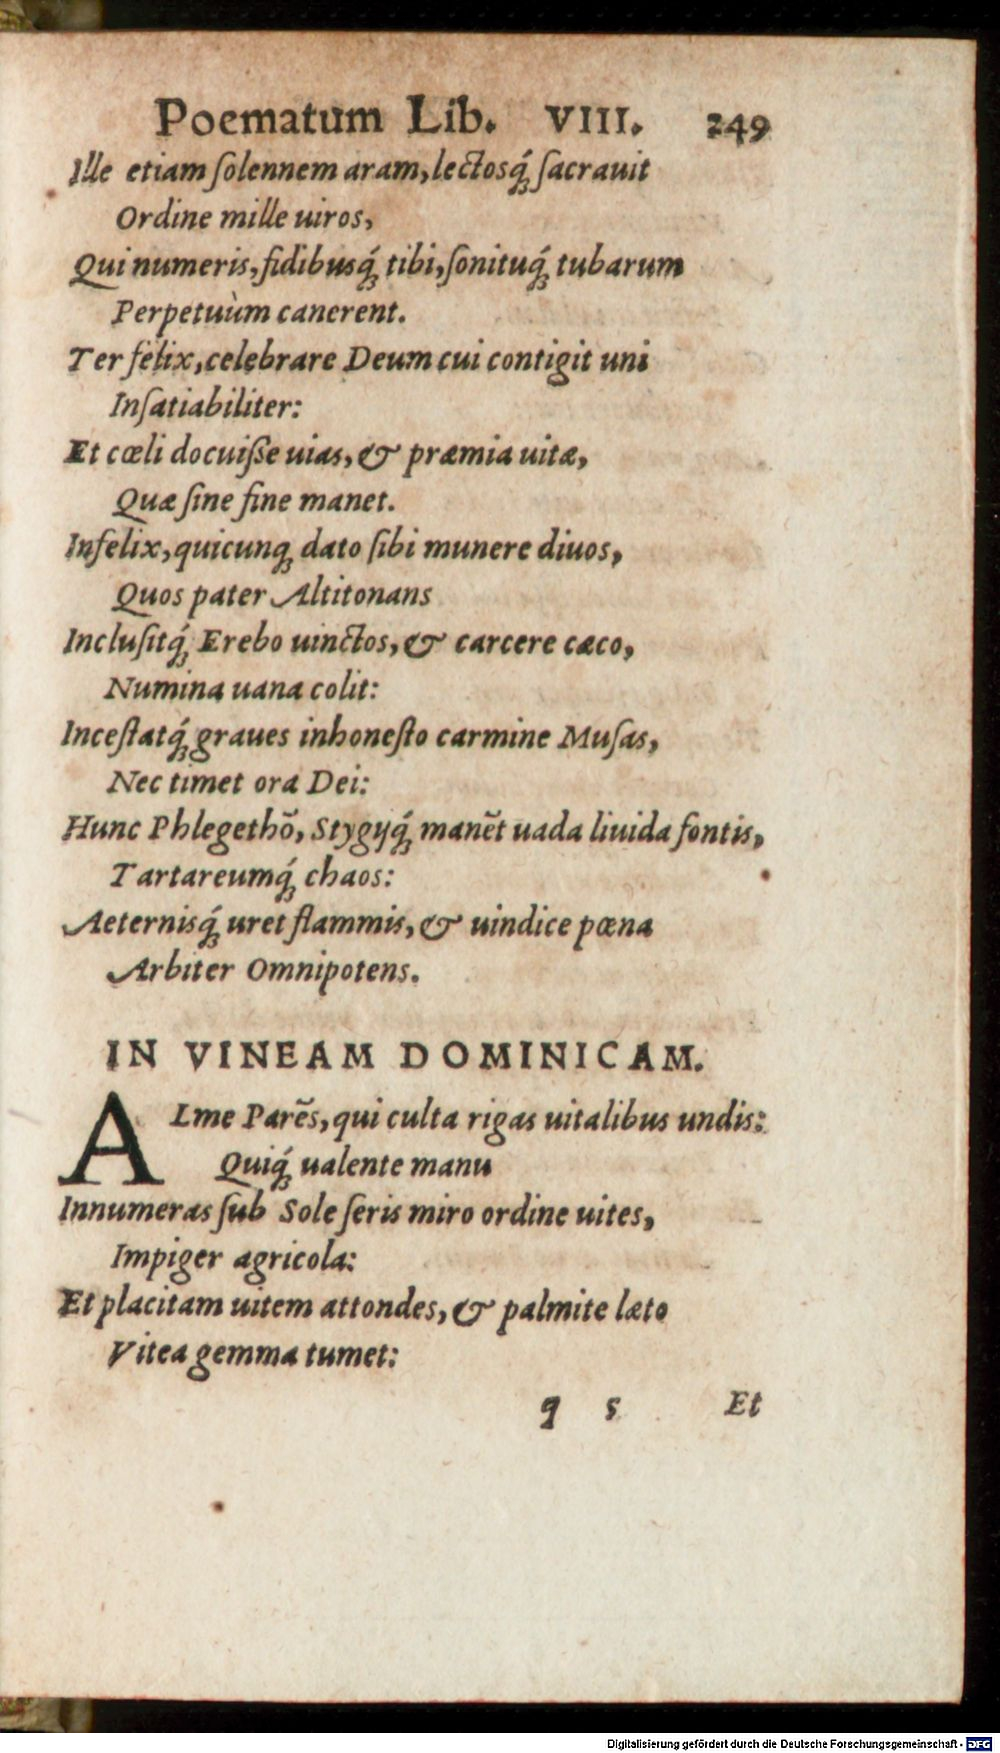 Poematum Lib. VIII. 249
Ille etiam ſolennem aram, lectosq́ꝫ ſacrauit
Ordine mille uiros,
Qui numeris, fidibusq́ꝫ tibi, ſonituq́ꝫ tubarum
Perpetuùm canerent.
Ter felix, celebrare Deum cui contigit uni
Inſatiabiliter:
Et cœli docuiſſe uias, & præmia uitæ,
Quæ ſine fine manet.
Infelix, quicunqꝫ dato ſibi munere diuos,
Quos pater Altitonans
Incluſitq́ꝫ Erebo uinctos, & carcere cæco,
Numina uana colit:
Inceſtatq́ꝫ graues inhoneſto carmine Muſas,
Nec timet ora Dei:
Hunc Phlegethō, Stygijq́ꝫ manēt uada liuida fontis,
Tartareumq́ꝫ chaos:
Aeternisq́ꝫ uret flammis, & uindice pœna
Arbiter Omnipotens.
IN VINEAM DOMINICAM.
ALme Parēs, qui culta rigas uitalibus undis:
Quiq́ꝫ ualente manu
Innumeras ſub Sole ſeris miro ordine uites,
Impiger agricola:
Et placitam uitem attondes, & palmite læto
Vitea gemma tumet:
q 5 Et
Digitalisierung gefördert durch die Deutsche Forschungsgemeinschaft - DFG